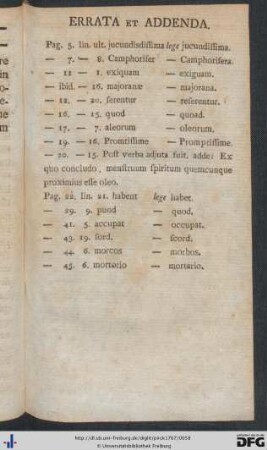 ERRATA ET ADDENDA.
Pag. 5. lin. ult. jucundisdissima lege jucundissima.
— 7. — 8. Camphorifer — Camphorifera.
— 11 — 1. exiquam — exiguam.
— ibid. — 16. majoranæ — majorana.
— 12. — 20. ferentur — referentur.
— 16. — 15. quod — quoad.
— 17. — 7. aleorum — oleorum.
— 19. — 16. Promtissime — Promptissime.
— 20. — 15. Post verba adjuta fuit, adde: Ex
quo concludo, menstruum spiritum quemcunque
proximius esse oleo.
Pag. 22. lin. 21. habent lege habet.
— 29. 9. puod — quod.
— 41. 5. accupat — occupat.
— 43. 19. sord. — scord.
— 44. 6. morcos — morbos.
— 45. 6. mortorio — mortario.
http://dl.ub.uni-freiburg.de/diglit/pirck1767/0058
© Universitätsbibliothek Freiburg
gefördert durch
DFG